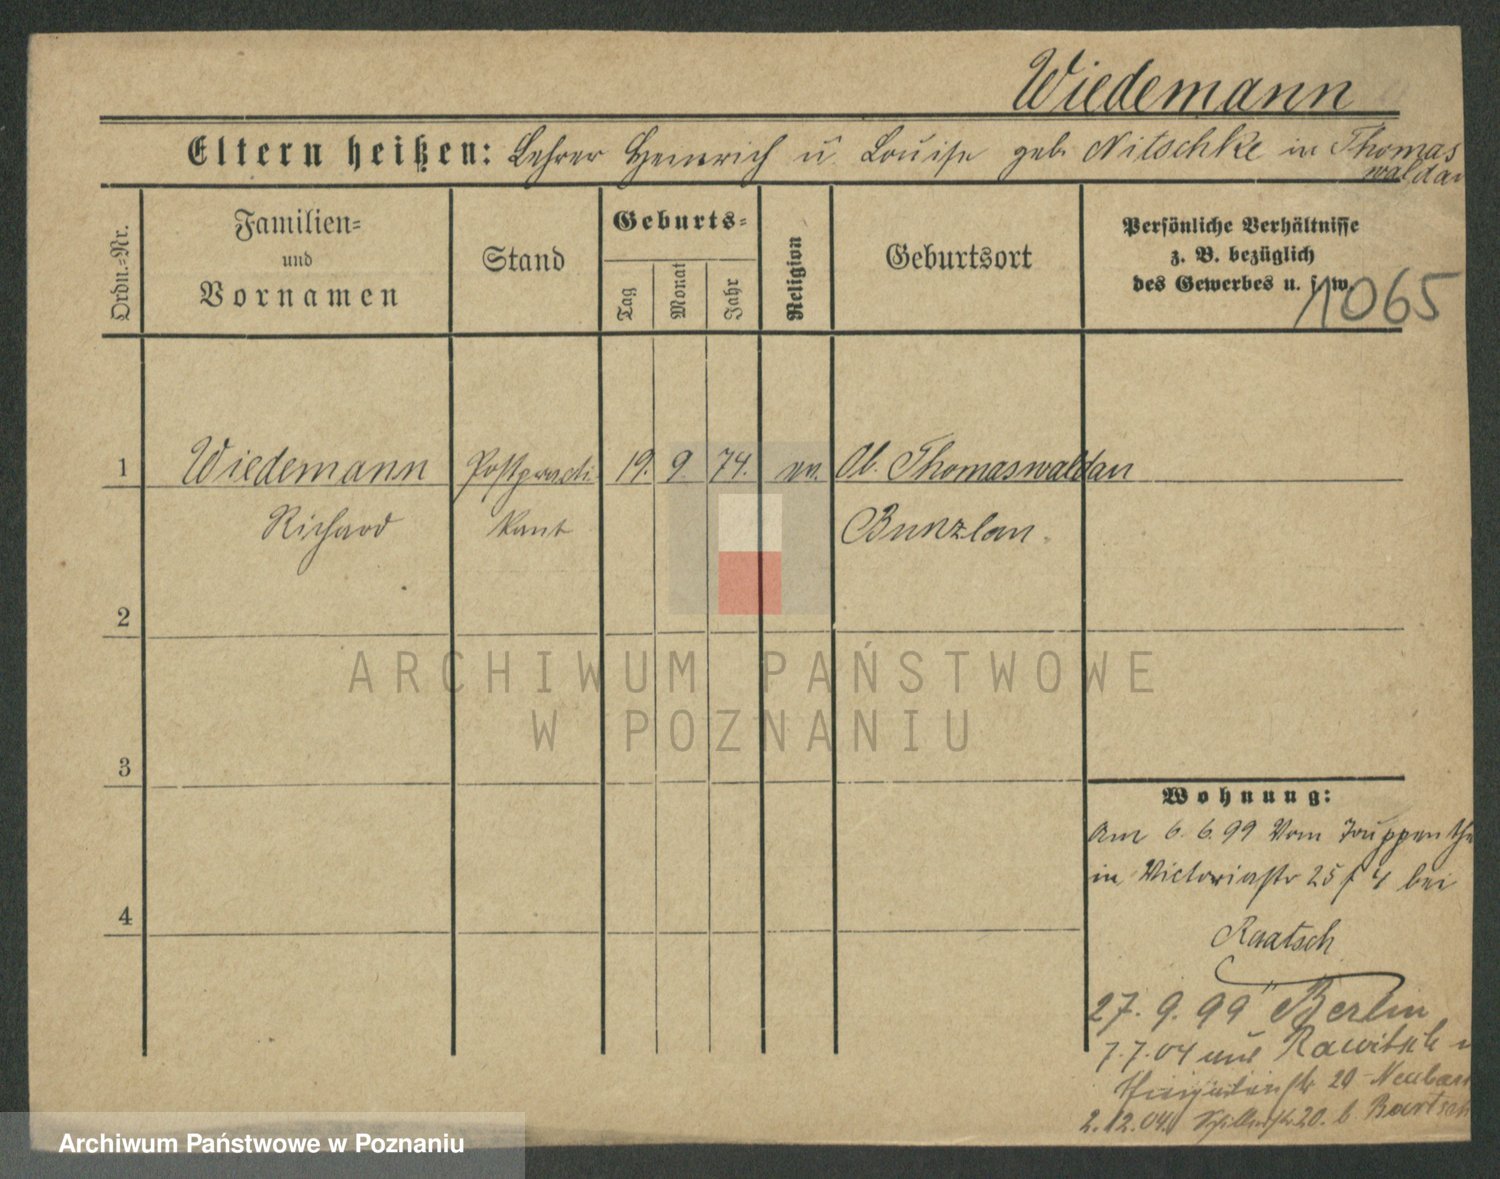 Wiedemann
Eltern heißen: Lehrer Heinrich u Louise geb. Nitschke in Thomas
waldau
Ordn.=Nr.
Familien=
und
Vornamen
Stand
Geburts=
Tag
Monat
Jahr
Religion
Geburtsort
Persönliche Verhältnisse
z. B. bezüglich
des Gewerbes u. s. w.
1065
1
Wiedemann
Postprakti
19. 9. 74.
ev.
Ob. Thomaswaldau
Richard
kant
Bunzlau.
2
3
4
Wohnung:
Am 6. 6. 99 Vom Truppenth
in Victoriastr 25 4 bei
Raatsch
27. 9. 99 Berlin
7.7.04 aus Rawitsch
20 Neubau
2.12.04. 20. b. Bartsch
ARCHIWUM PAŃSTWOWE
W POZNANIU
Archiwum Państwowe w Poznaniu